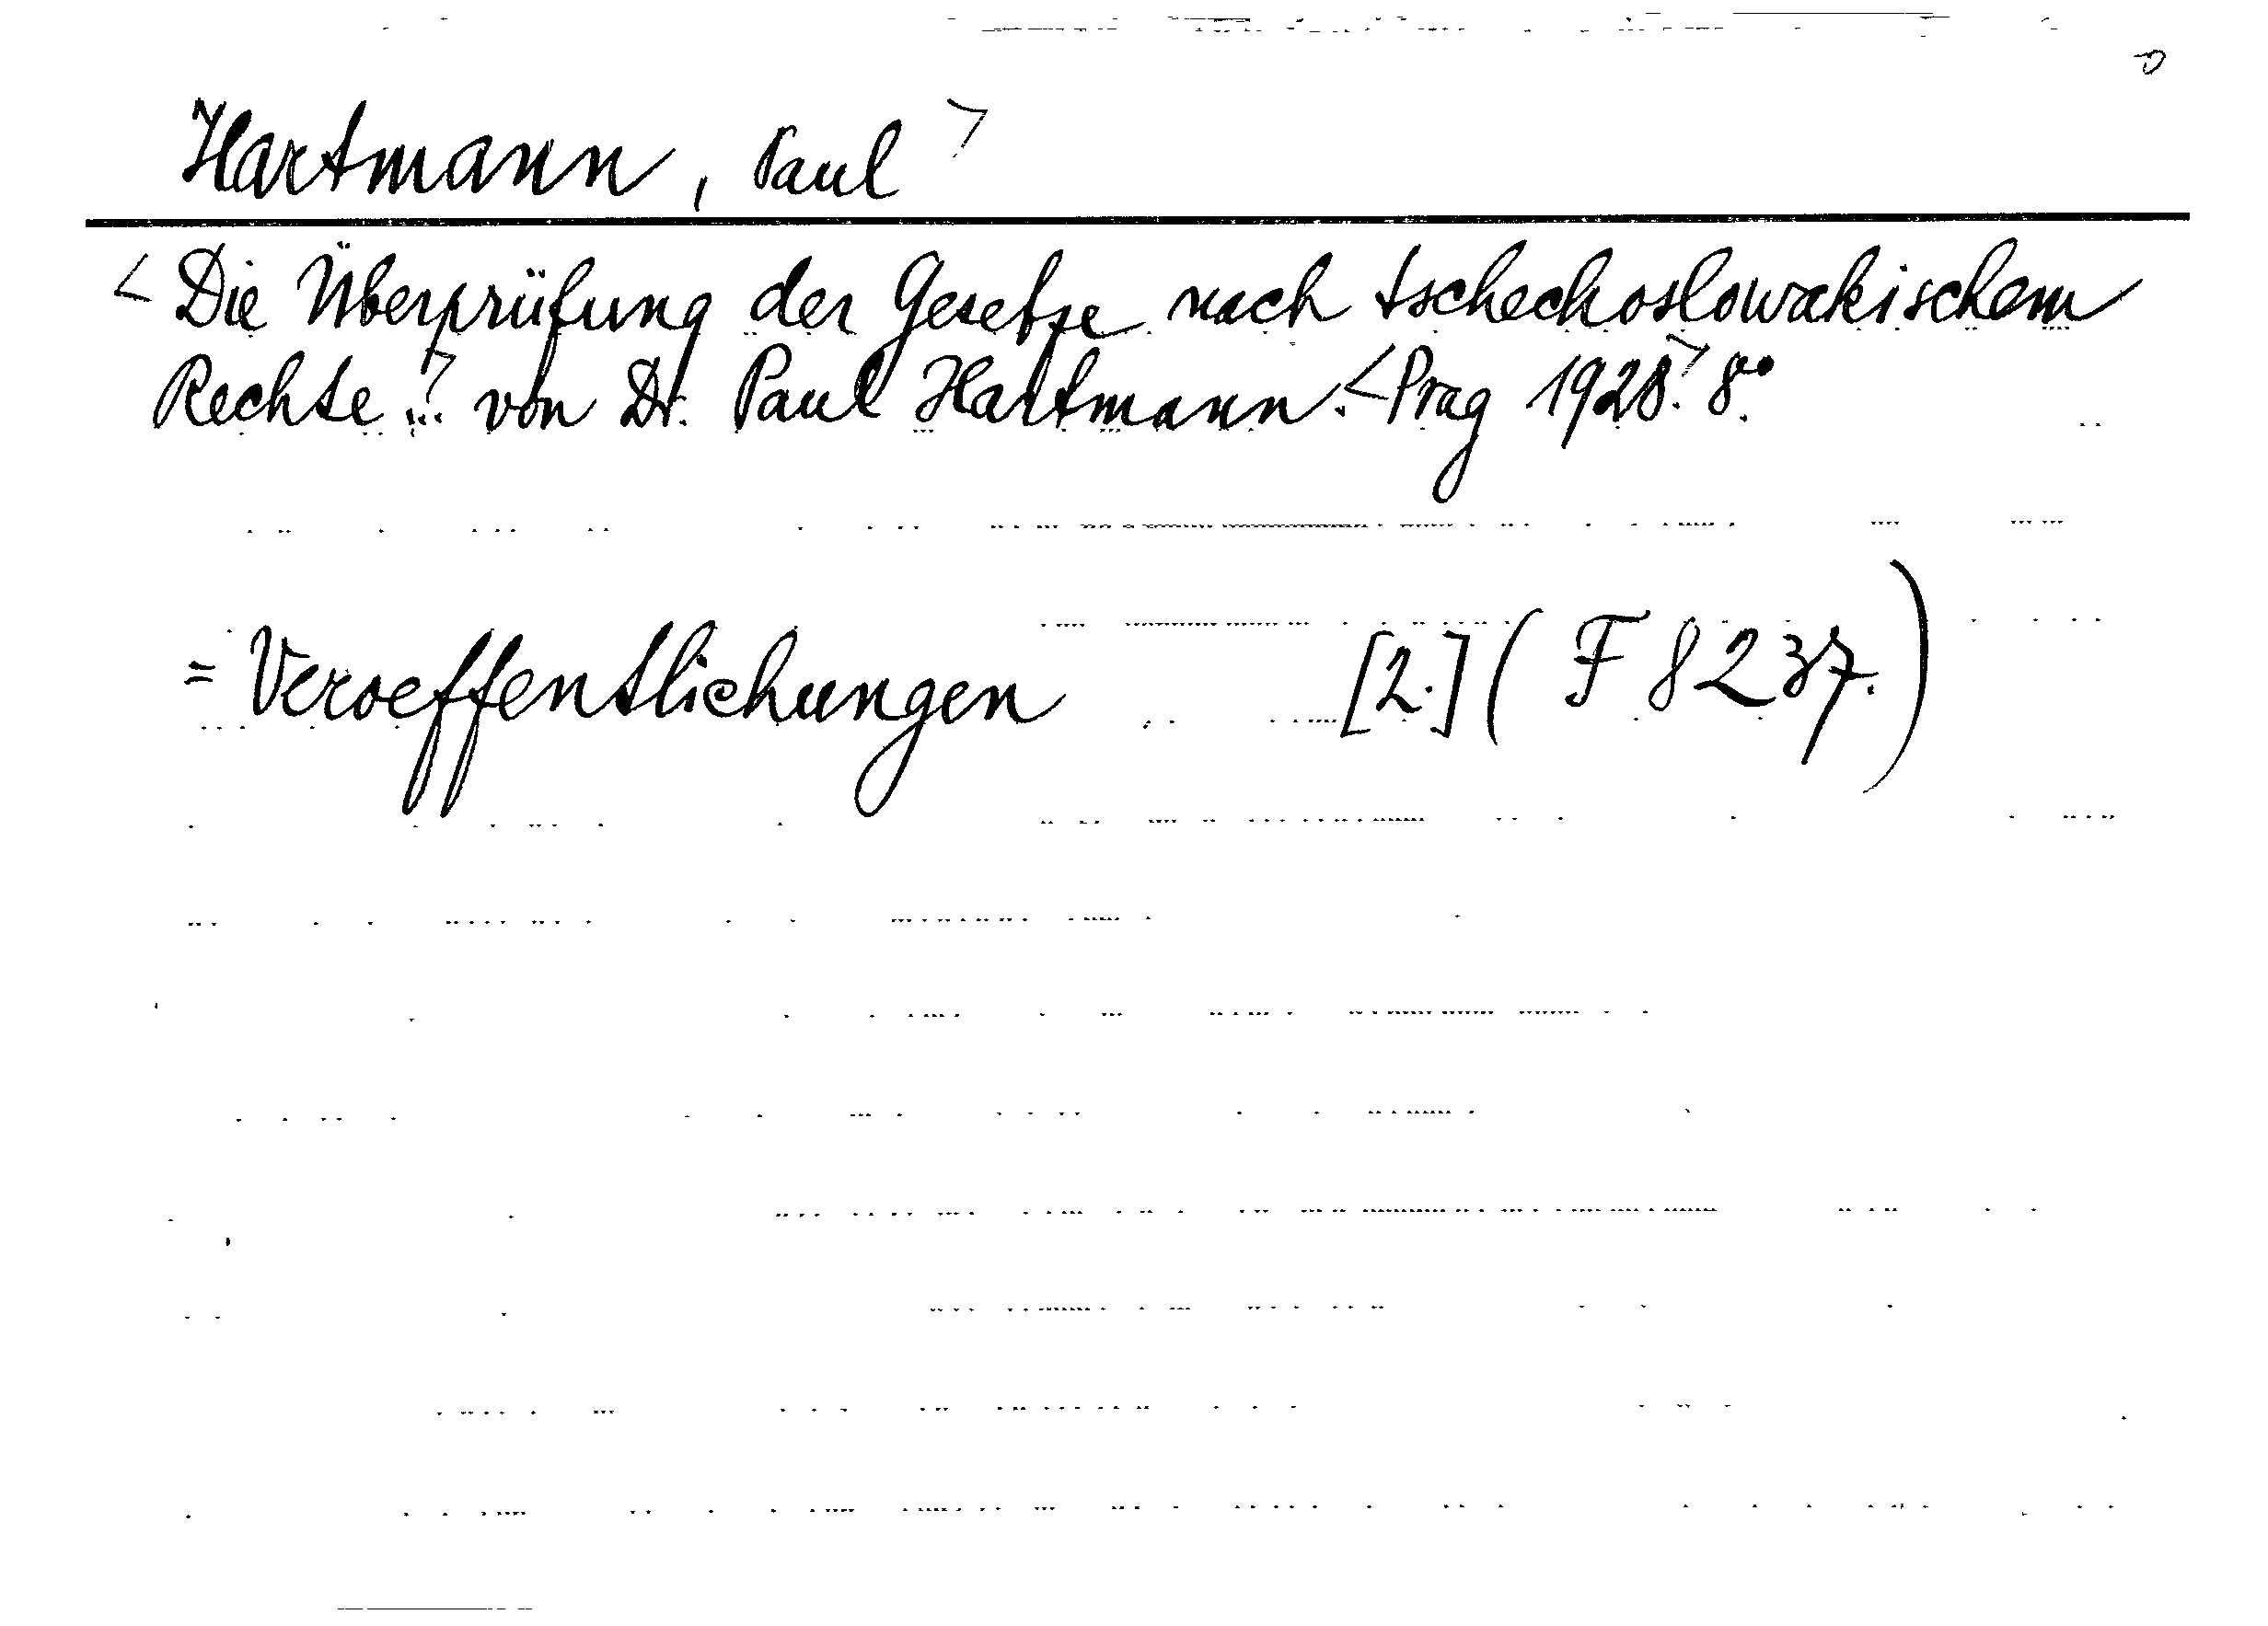 Hartmann, Paul >
< Die Überprüfung der Gesetze nach tschechoslowakischem
Rechte...> von Dr. Paul Hartmann. < Prag 1928.> 8°.
= Veroeffentlichungen [2.] (F 8237.)